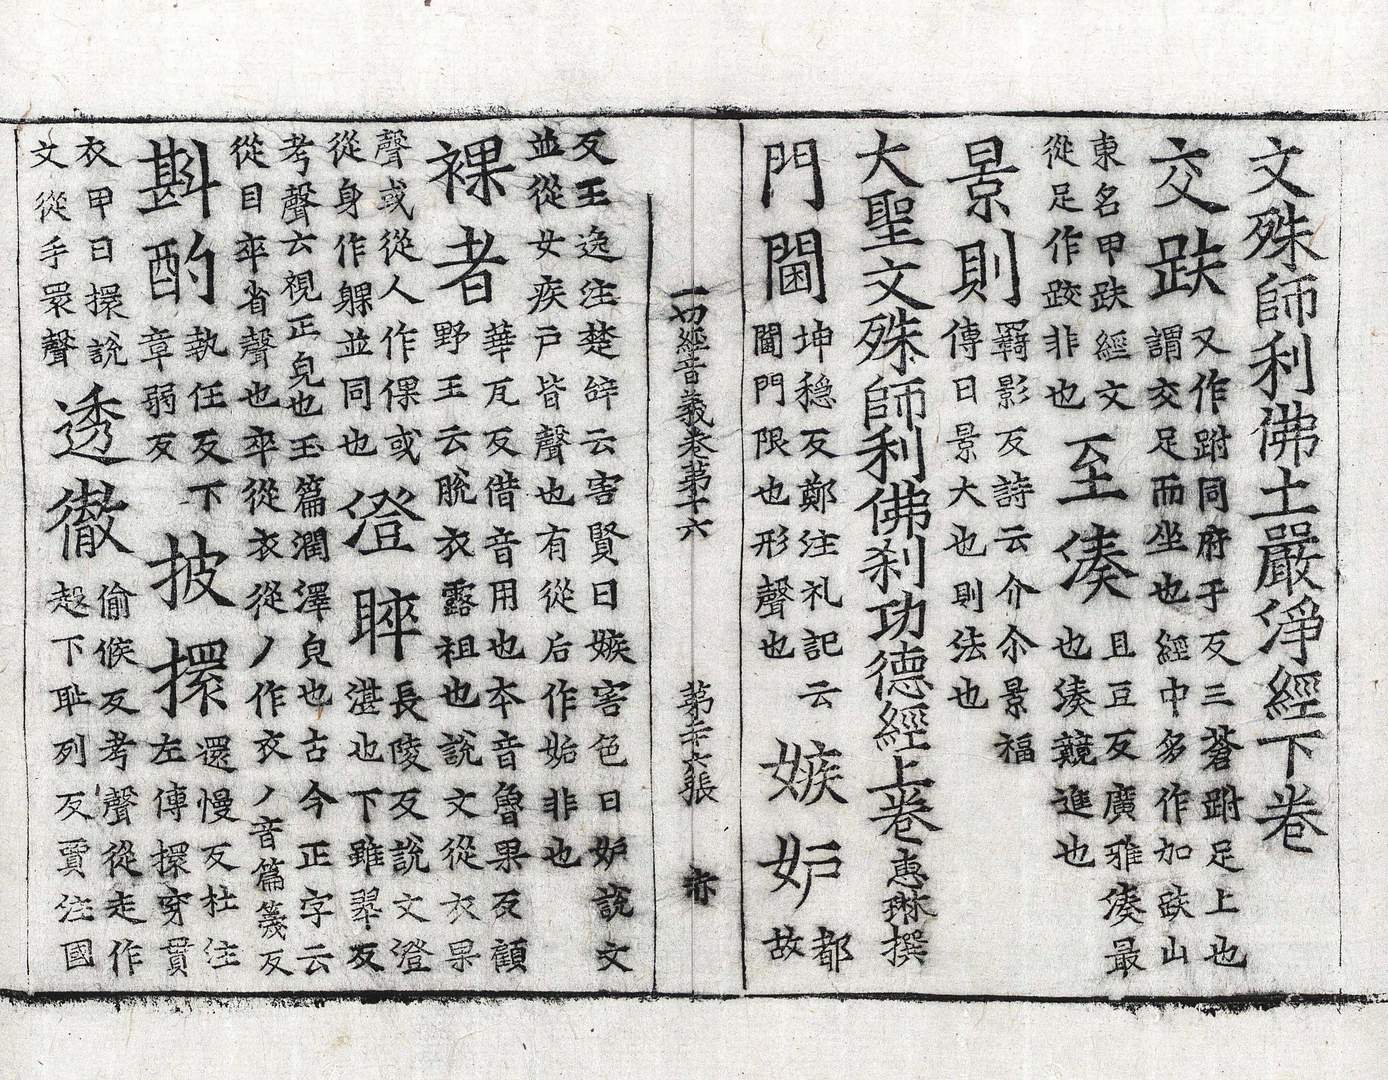 文殊師利佛土嚴淨經下卷
交趺
又作跗同府于反三蒼跗足上也
謂交足而坐也經中多作加趺山
東名甲趺經文
從足作跤非也
至湊
且豆反廣雅湊最
也湊競進也
景則
羇影反詩云介介景福
傳曰景大也則法也
大聖文殊師利佛刹功德經上卷 惠琳撰
門閫
坤穏反鄭注礼記云
閫門限也形聲也
嫉妒
都
故
一切經音義卷第十六 第二十六張 赤
反王逸注楚辤云害賢曰嫉害色曰妒說文
並從女疾戶皆聲也有從后作姤非也
裸者
華瓦反借音用也本音魯果反顧
野王云脫衣露袒也說文從衣果
聲或從人作倮或
從身作躶並同也
澄睟
長陵反說文澄
湛也下雖翠反
考聲云視正皃也玉篇潤澤皃也古今正字云
從目卒省聲也卒從衣從丿作衣丿音篇篾反
斟酌
執任反下
章弱反
披擐
還慢反杜注
左傳擐穿貫
衣甲曰擐說
文從手睘聲
透徹
偷候反考聲從走作
下耻列反賈注國